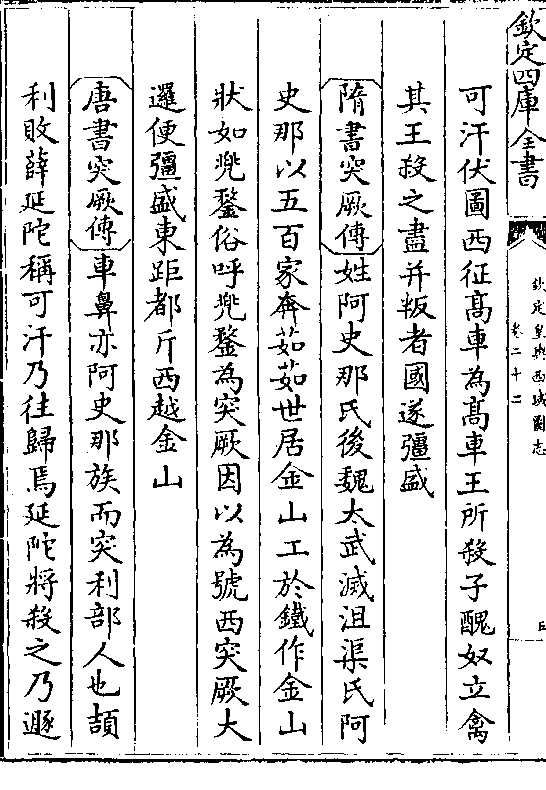 欽定四庫全書
欽定皇輿西域圖志
卷二十二
可汗伏圖西征髙車為髙車王所殺子醜奴立禽
其王殺之盡并叛者國遂彊盛
隋書突厥傳姓阿史那氏後魏太武滅沮渠氏阿
史那以五百家奔茹茹世居金山工於鐵作金山
狀如兠鍪俗呼兠鍪為突厥因以為號西突厥大
邏便彊盛東距都斤西越金山
唐書突厥傳車鼻亦阿史那族而突利部人也頡
利敗薛延陀稱可汗乃往歸焉延陀將殺之乃遯